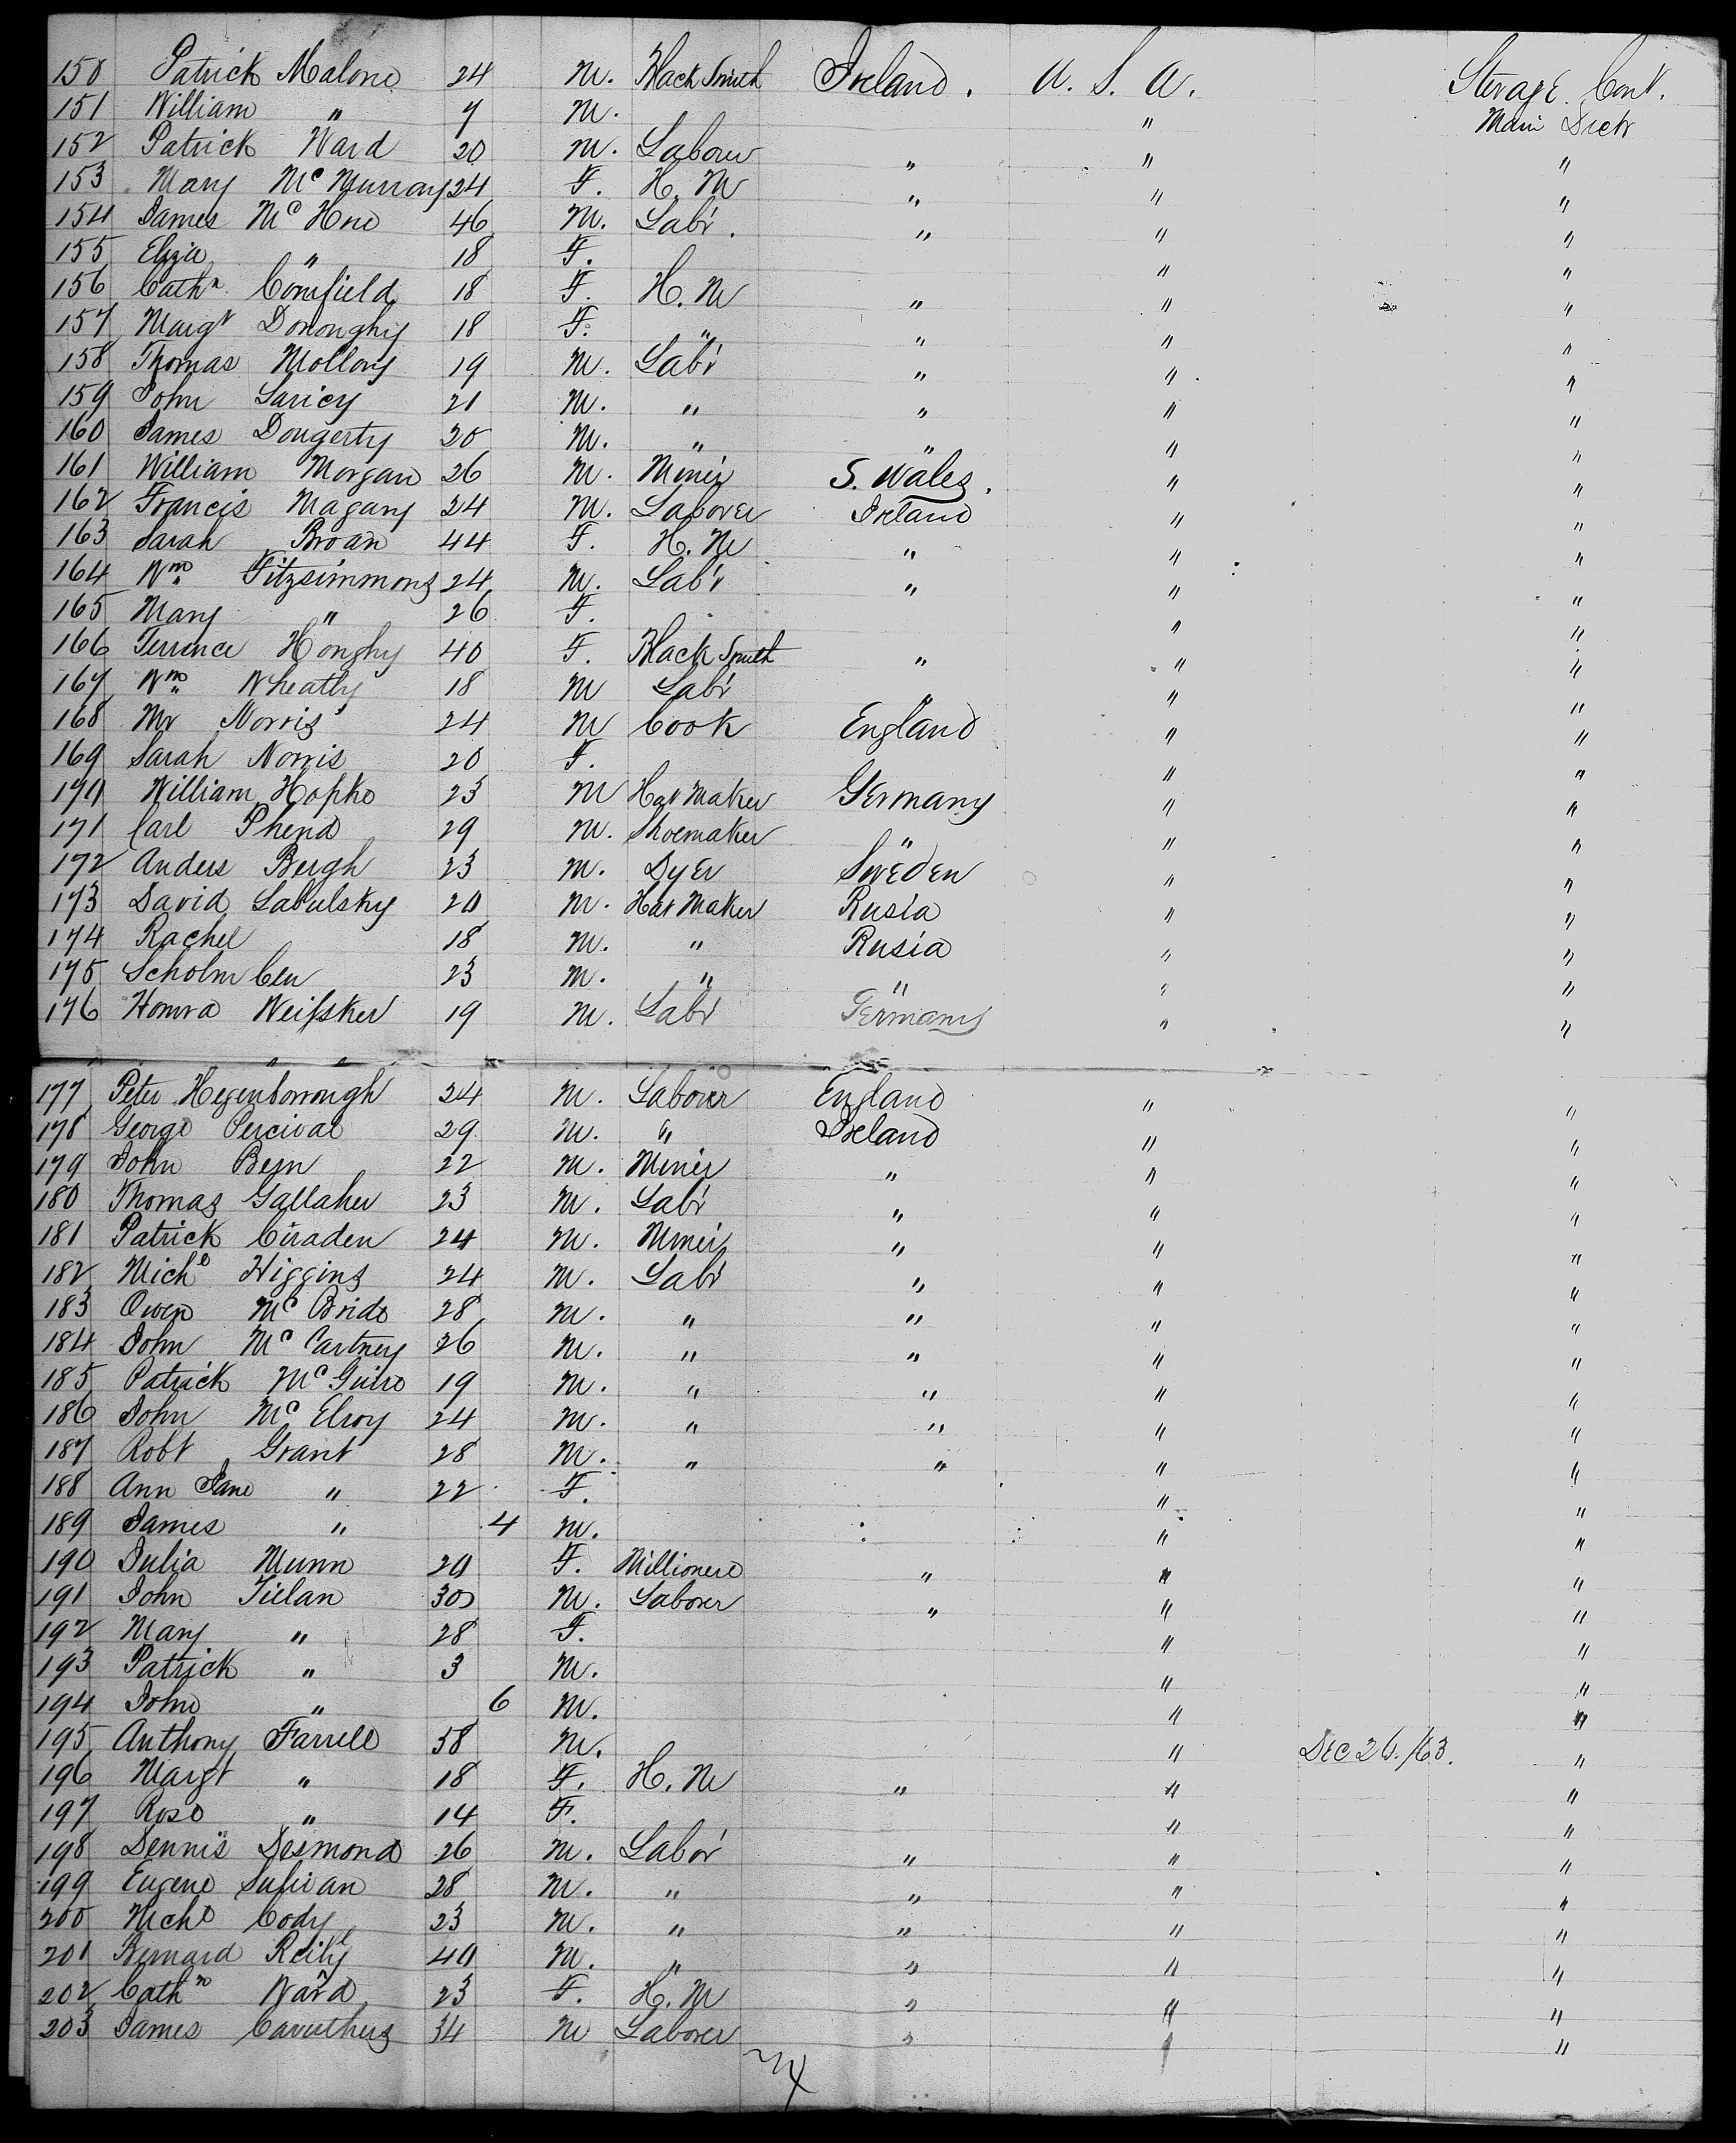 150 Patrick Malone 24 M. Black Smith Ireland. U. S. A. Sterage Cont.
151 William " 7 M. " Main Deck
152 Patrick Ward 20 M. Labour " " "
153 Mary Mc Murray 24 F. H. M " " "
154 James Mc Hue 46 M. Labr. " " "
155 Eliza " 18 F. " "
156 Cathn Cornfield 18 F. H. M " " "
157 Margt Donoughy 18 F. " " " "
158 Thomas Mollony 19 M. Labr " " "
159 John Laricy 21 M. " " " "
160 James Dougerty 20 M. " " " "
161 William Morgan 26 M. Miner S. Wales. " "
162 Francis Magany 24 M. Laborer Ireland " "
163 Sarah Broan 44 F. H. M " " "
164 Wm Fitzsimmons 24 M. Labr " " "
165 Mary " 26 F. " "
166 Terrence Honghy 40 F. Black Smith " " "
167 Wm Wheatly 18 M Labr " " "
168 Mr Norris 24 M Cook England " "
169 Sarah Norris 20 F. " "
170 William Hopke 23 M Hat Maker Germany " "
171 Carl Phend 29 M. Shoemaker " " "
172 Anders Bergh 23 M. Dyer Sweden " "
173 David Labulsky 20 M. Hat Maker Rusia " "
174 Rachel 18 M. " Rusia " "
175 Scholm Cen 23 M. " " " "
176 Weifsker 19 M. Labr Germany " "
177 Peter Hegenborrough 24 M. Labourer England " "
178 George Percival 29 M. " Ireland " "
179 John Bern 22 M. Miner " " "
180 Thomas Gallaher 23 M. Labr " " "
181 Patrick Ciraden 24 M. Miner " " "
182 Michl Higgins 24 M. Labr " " "
183 Owen Mc Bride 28 M. " " " "
184 John Mc Cartney 26 M. " " " "
185 Patrick Mc Guire 19 M. " " " "
186 John Mc Elroy 24 M. " " " "
187 Robt Grant 28 M. " " " "
188 Ann Jane " 22 F. " "
189 James " 4 M. " "
190 Julia Munn 20 F. Millionere " " "
191 John Tielan 30 M. Laborer " " "
192 Mary " 28 F. " "
193 Patrick " 3 M. " "
194 John " 6 M. " "
195 Anthony Farrell 58 M. " Dec 26./63. "
196 Margt " 18 F. H. M " " "
197 Rose " 14 F. " "
198 Dennis Desmond 26 M. Labor " " "
199 Eugene Sulivan 28 M. " " " "
200 Michl Cody 23 M. " " " "
201 Bernard Reily 40 M. " " " "
202 Cathn Ward 23 F. H. M " " "
203 James Caruthers 34 M Laborer " " "